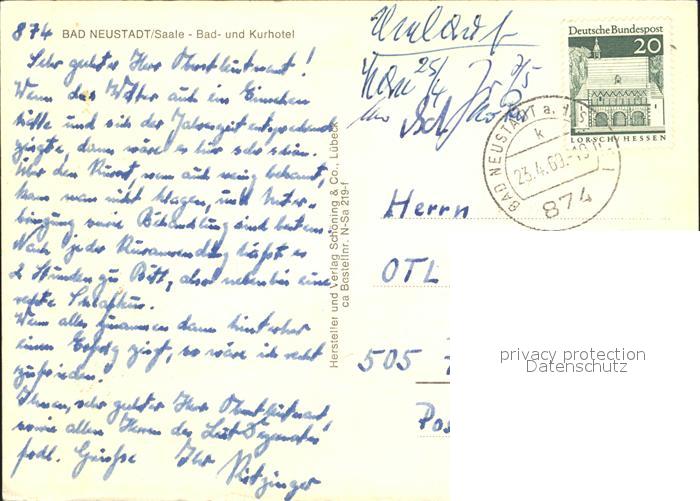 874 BAD NEUSTADT/Saale - Bad- und Kurhotel
Sehr geehrter Herr Oberstleutnant!
Wenn das Wetter auch ein Einsehen
hätte und sich der Jahreszeit entsprechend
zeigte, dann wäre es hier sehr schön.
Über den Kurort, wenn auch wenig bekannt,
kann man nicht klagen, und Unter-
bringung sowie Behandlung sind bestens.
Nach jeder Kuranwendung heißt es
2 Stunden zu Bett, also nebenbei eine
reine Schlafkur.
Wenn alles zusammen dann hinterher
einen Erfolg zeigt, so wäre ich recht
zufrieden.
Ihnen, sehr geehrter Herr Oberstleutnant
sowie allen Herren des
frdl. Grüße Ihr Kitzinger
Hersteller und Verlag Schöning & Co., Lübeck
ca Bestellnr. N-Sa 219-f
Umlauf
Deutsche Bundespost
20
LORSCH/HESSEN
BAD NEUSTADT a. d. S
k
23.4.69.-19
874
Herrn
OTL
505
privacy protection
Datenschutz